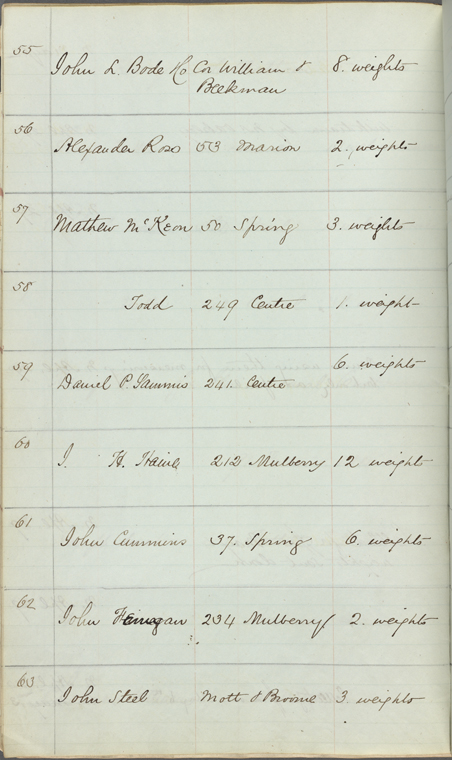 55
John L. Bode & Co Cor William & 8. weights
Beekman
56
Alexander Ross 53 Marion 2. weights
57
Mathew McKeon 50 Spring 3. weights
58
Todd 249 Centre 1. weight
59
6. weights
Daniel P. 241. Centre
60
J. H. 212 Mulberry 12 weights
61
John Cummins 37. Spring 6. weights
62
John 234 Mulberry 2. weights
63
John Steel Mott & Broome 3. weights